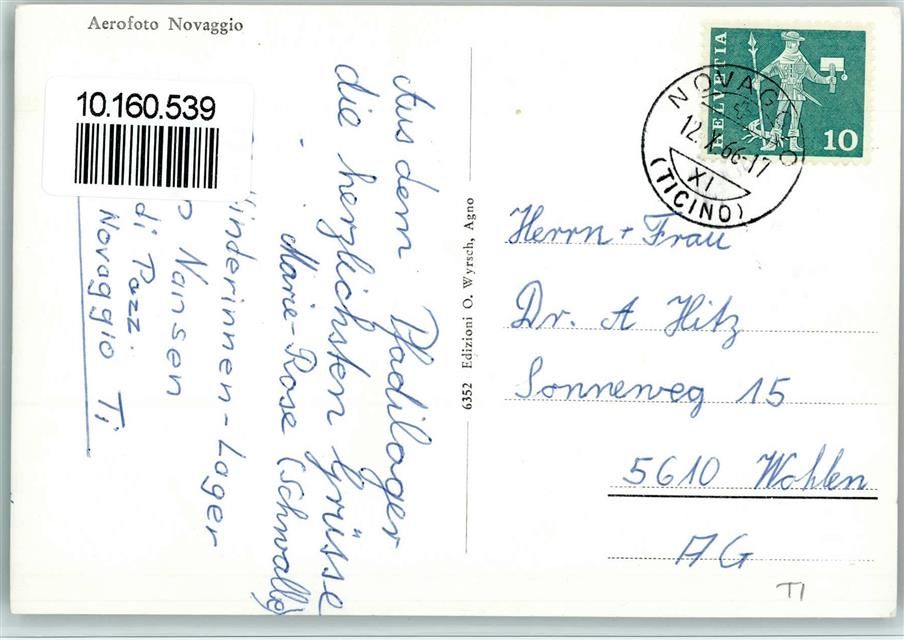 Aerofoto Novaggio
10.160.539
Aus dem Pfadilager
die herzlichsten Grüsse
Marie-Rose (Schwalbe)
Lager
Nansen
di Pazzi
Novaggio Ti
6352 Edizioni O. Wyrsch, Agno
HELVETIA
10
NOVAGGIO
12.X.66-17
XI
(TICINO)
Herrn + Frau
Dr. A Hitz
Sonneweg 15
5610 Wohlen
AG
TI